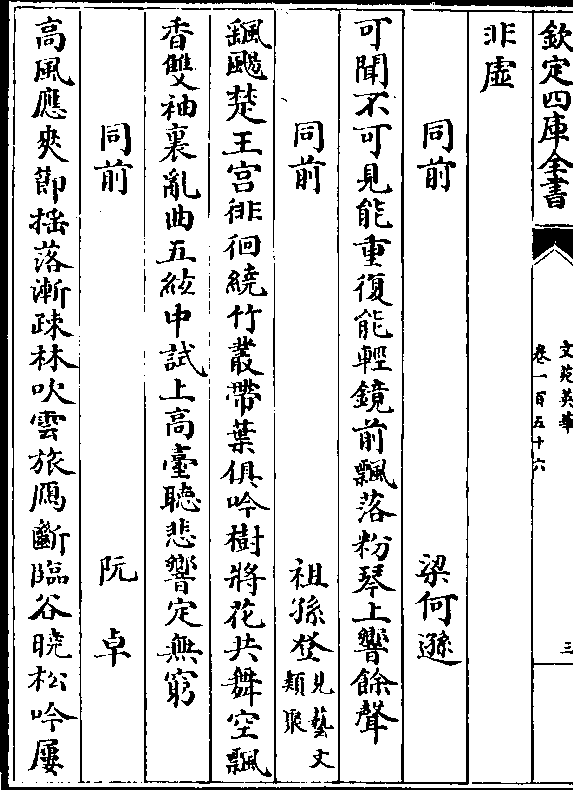 欽定四庫全書
文苑英華
卷一百五十六
三
非虛
同前 梁何遜
可聞不可見能重復能輕鏡前飄落粉琴上響餘聲
同前 祖孫登見藝文類聚
飆颺楚王宫徘徊繞竹叢帶葉俱吟樹將花共舞空飄
香雙袖裏亂曲五絃中試上高臺聽悲響定無窮
同前 阮卓
高風應爽節揺落漸疎林吹雲旅鴈斷臨谷曉松吟屢